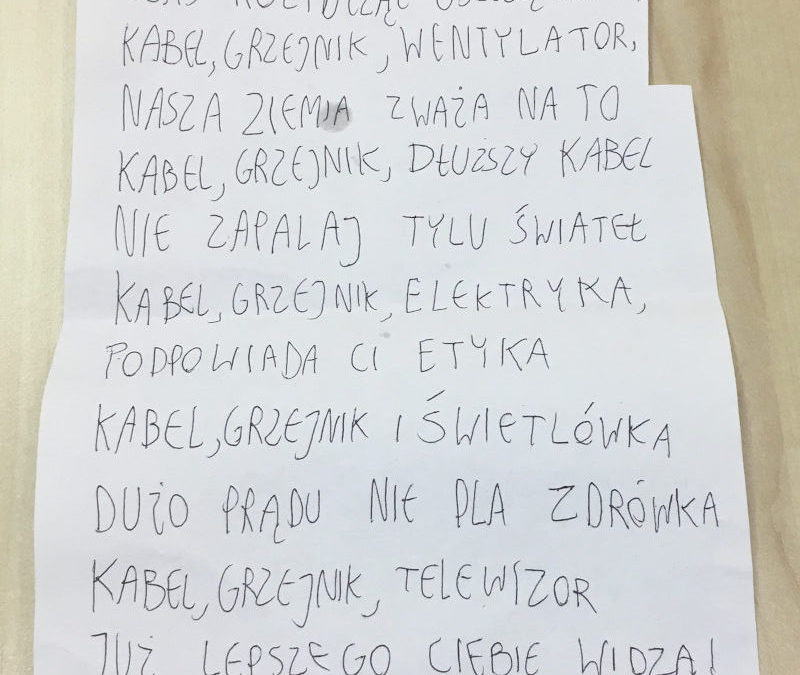 KABEL, GRZEJNIK, WENTYLATOR,
NASZA ZIEMIA ZWAŻA NA TO
KABEL, GRZEJNIK, DŁUŻSZY KABEL
NIE ZAPALAJ TYLU ŚWIATEŁ
KABEL, GRZEJNIK, ELEKTRYKA,
PODPOWIADA CI ETYKA
KABEL, GRZEJNIK I ŚWIETLÓWKA
DUŻO PRĄDU NIE DLA ZDRÓWKA
KABEL, GRZEJNIK, TELEWIZOR
JUŻ LEPSZEGO CIEBIE WIDZĄ!